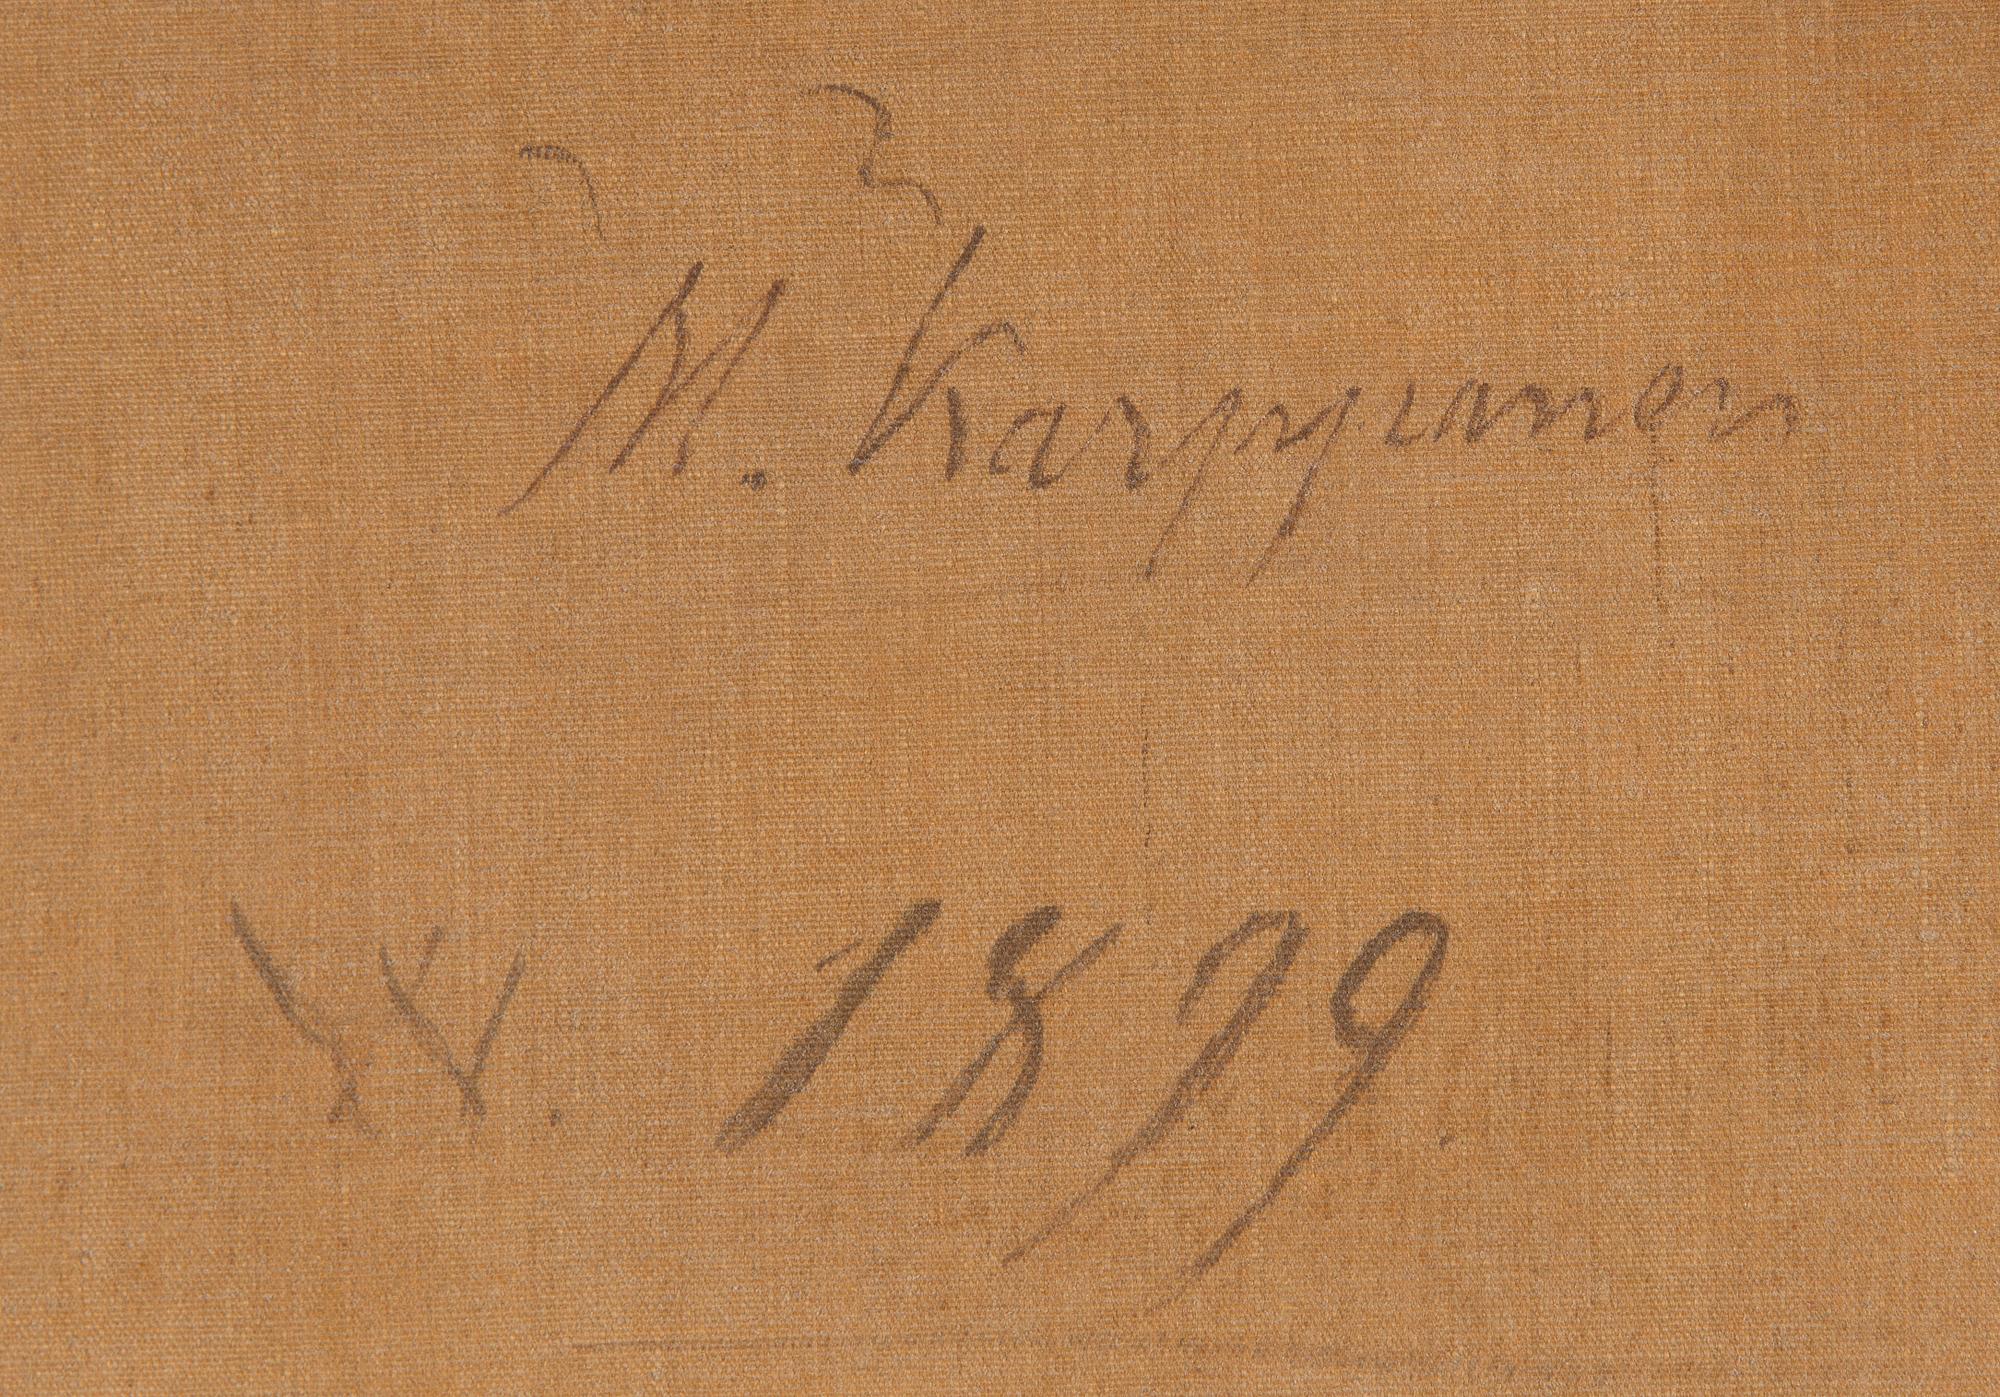 M. Karppanen
W. 1899.